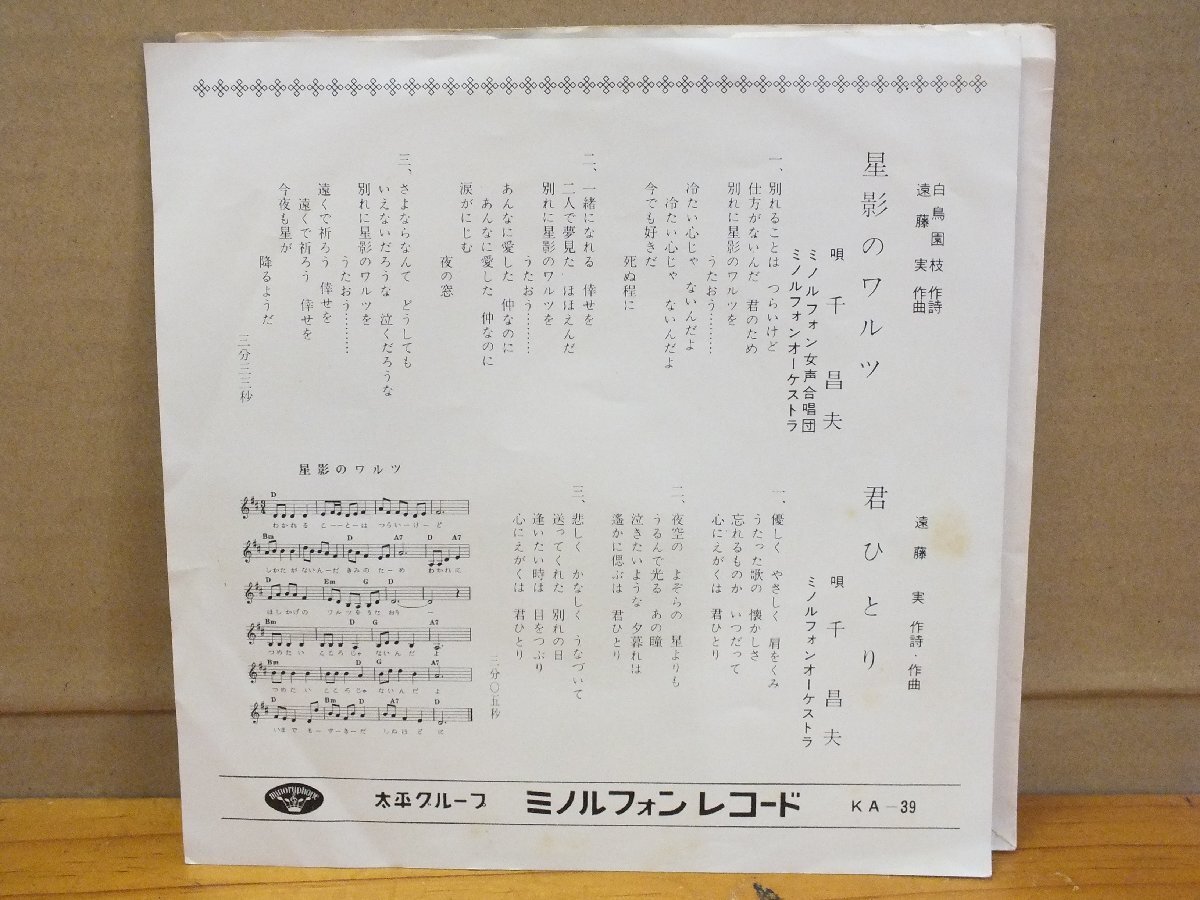 星影のワルツ
白鳥園枝 作詩
遠藤 実 作曲
唄 千昌夫
ミノルフォン女声合唱団
ミノルフォンオーケストラ
一、別れることは つらいけど
仕方がないんだ 君のため
別れに星影のワルツを
うたおう…………
冷たい心じゃ ないんだよ
冷たい心じゃ ないんだよ
今でも好きだ
死ぬ程に
二、一緒になれる 倖せを
二人で夢見た ほほえんだ
別れに星影のワルツを
うたおう…………
あんなに愛した 仲なのに
あんなに愛した 仲なのに
涙がにじむ
夜の窓
三、さよならなんて どうしても
いえないだろうな 泣くだろうな
別れに星影のワルツを
うたおう…………
遠くで祈ろう 倖せを
遠くで祈ろう 倖せを
今夜も星が
降るようだ
三分三三秒
君ひとり
遠藤 実 作詩・作曲
唄 千昌夫
ミノルフォンオーケストラ
一、優しく やさしく 肩をくみ
うたった歌の 懐かしさ
忘れるものか いつだって
心にえがくは 君ひとり
二、夜空の よぞらの 星よりも
うるんで光る あの瞳
泣きたいような 夕暮れは
遙かに偲ぶは 君ひとり
三、悲しく かなしく うなづいて
送ってくれた 別れの日
逢いたい時は 目をつぶり
心にえがくは 君ひとり
三分〇五秒
星影のワルツ
D
わかれる こーとーは つらいーけーど
Bm D A7 D A7
しかたがないんーだ きみのたーめ わかれに
D Bm G D
ほしかげの ワルツをうたおうー
Bm D G A7
つめたい こころじゃ ないんだよ
Bm D G A7
つめたい こころじゃ ないんだよ
D Bm D A7 D
いまでも ーすーきーだ しぬほどに
minoryphone
太平グループ ミノルフォンレコード KA-39